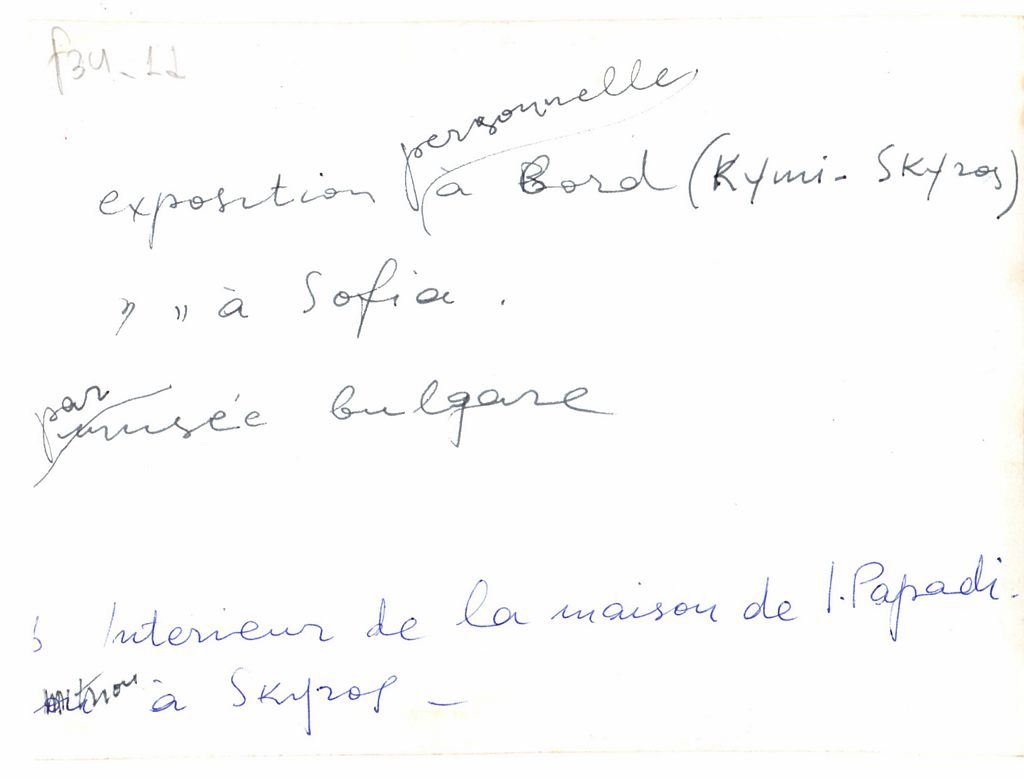 f34-11
personnelle
exposition à Bord (Kymi - Skyros)
" " à Sofia .
par
musée bulgare
Interieur de la maison de I. Papadi-
mitriou à Skyros -